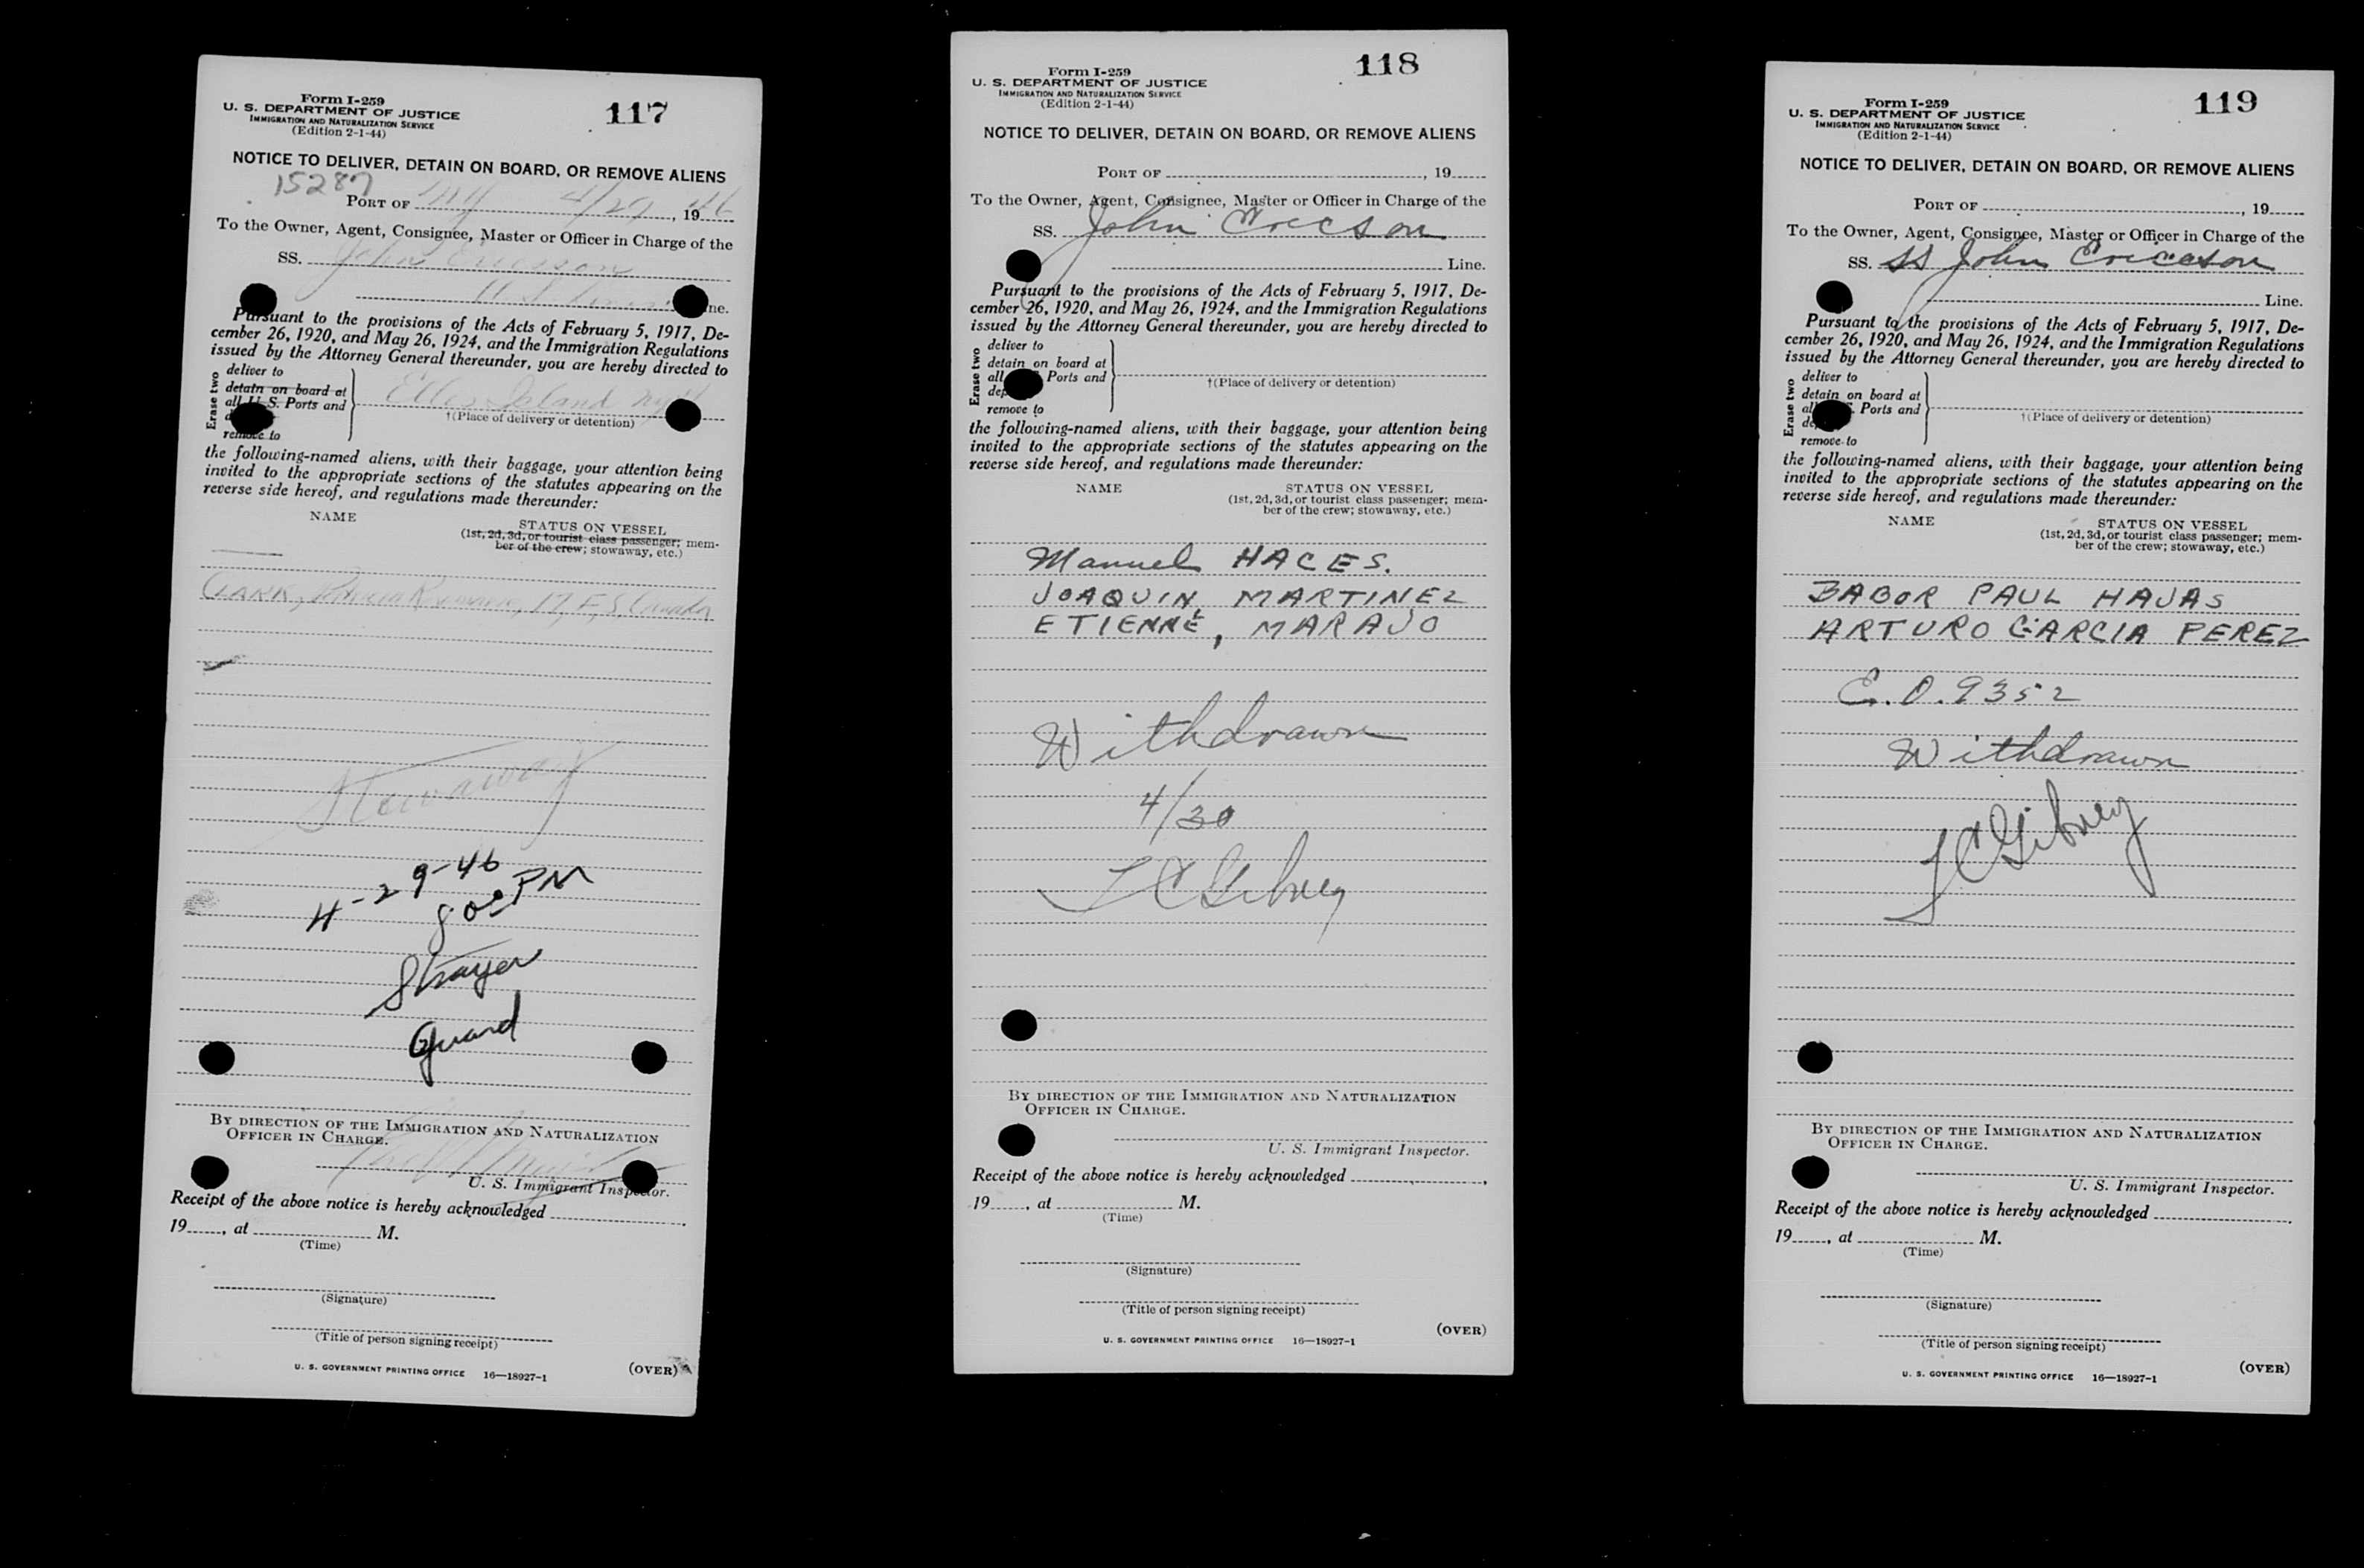 Form I-259
U. S. DEPARTMENT OF JUSTICE
IMMIGRATION AND NATURALIZATION SERVICE
(Edition 2-1-44)
117
NOTICE TO DELIVER, DETAIN ON BOARD, OR REMOVE ALIENS
15287
PORT OF NY 4/29, 1946
To the Owner, Agent, Consignee, Master or Officer in Charge of the
SS. John Ericsson
U S Lines Line.
Pursuant to the provisions of the Acts of February 5, 1917, De-
cember 26, 1920, and May 26, 1924, and the Immigration Regulations
issued by the Attorney General thereunder, you are hereby directed to
Erase two
deliver to
detain on board at
all U. S. Ports and
remove to
Ellis Island NYH
†(Place of delivery or detention)
the following-named aliens, with their baggage, your attention being
invited to the appropriate sections of the statutes appearing on the
reverse side hereof, and regulations made thereunder:
NAME
STATUS ON VESSEL
(1st, 2d, 3d, or tourist class passenger; mem-
ber of the crew; stowaway, etc.)
CLARK, Patricia Rosemarie, 17, F, S, Canada
Stowaway
4-29-46
8:00 PM
Strayer
Guard
BY DIRECTION OF THE IMMIGRATION AND NATURALIZATION
OFFICER IN CHARGE.
U. S. Immigrant Inspector.
Receipt of the above notice is hereby acknowledged
19, at M.
(Time)
(Signature)
(Title of person signing receipt)
U. S. GOVERNMENT PRINTING OFFICE 16—18927-1
(OVER)
Form I-259
U. S. DEPARTMENT OF JUSTICE
IMMIGRATION AND NATURALIZATION SERVICE
(Edition 2-1-44)
118
NOTICE TO DELIVER, DETAIN ON BOARD, OR REMOVE ALIENS
PORT OF , 19
To the Owner, Agent, Consignee, Master or Officer in Charge of the
SS. John Ericson
Line.
Pursuant to the provisions of the Acts of February 5, 1917, De-
cember 26, 1920, and May 26, 1924, and the Immigration Regulations
issued by the Attorney General thereunder, you are hereby directed to
Erase two
deliver to
detain on board at
all Ports and
remove to
†(Place of delivery or detention)
the following-named aliens, with their baggage, your attention being
invited to the appropriate sections of the statutes appearing on the
reverse side hereof, and regulations made thereunder:
NAME
STATUS ON VESSEL
(1st, 2d, 3d, or tourist class passenger; mem-
ber of the crew; stowaway, etc.)
Manuel HACES.
JOAQUIN, MARTINEZ
ETIENNE, MARAJO
Withdrawn
4/30
L C Gibney
BY DIRECTION OF THE IMMIGRATION AND NATURALIZATION
OFFICER IN CHARGE.
U. S. Immigrant Inspector.
Receipt of the above notice is hereby acknowledged
19, at M.
(Time)
(Signature)
(Title of person signing receipt)
U. S. GOVERNMENT PRINTING OFFICE 16—18927-1
(OVER)
Form I-259
U. S. DEPARTMENT OF JUSTICE
IMMIGRATION AND NATURALIZATION SERVICE
(Edition 2-1-44)
119
NOTICE TO DELIVER, DETAIN ON BOARD, OR REMOVE ALIENS
PORT OF , 19
To the Owner, Agent, Consignee, Master or Officer in Charge of the
SS. SS John Ericcson
Line.
Pursuant to the provisions of the Acts of February 5, 1917, De-
cember 26, 1920, and May 26, 1924, and the Immigration Regulations
issued by the Attorney General thereunder, you are hereby directed to
Erase two
deliver to
detain on board at
Ports and
remove to
†(Place of delivery or detention)
the following-named aliens, with their baggage, your attention being
invited to the appropriate sections of the statutes appearing on the
reverse side hereof, and regulations made thereunder:
NAME
STATUS ON VESSEL
(1st, 2d, 3d, or tourist class passenger; mem-
ber of the crew; stowaway, etc.)
BABOR PAUL HAJAS
ARTURO GARCIA PEREZ
E.O. 9352
Withdrawn
L C Gibney
BY DIRECTION OF THE IMMIGRATION AND NATURALIZATION
OFFICER IN CHARGE.
U. S. Immigrant Inspector.
Receipt of the above notice is hereby acknowledged
19, at M.
(Time)
(Signature)
(Title of person signing receipt)
U. S. GOVERNMENT PRINTING OFFICE 16—18927-1
(OVER)